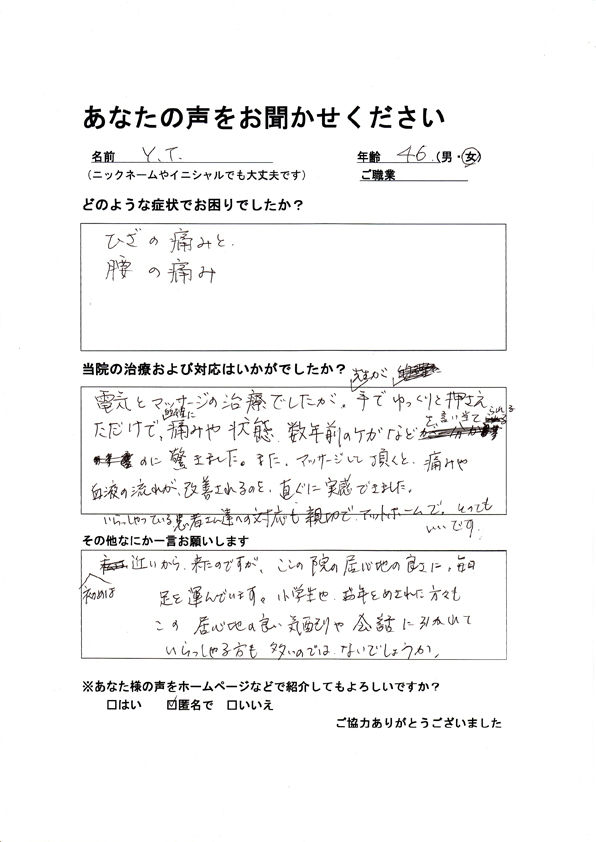 あなたの声をお聞かせください
名前 Y.T. 年齢 46 (男・女)
(ニックネームやイニシャルでも大丈夫です) ご職業
どのような症状でお困りでしたか？
ひざの痛みと、
腰の痛み
当院の治療および対応はいかがでしたか？
先生が
電気とマッサージの治療でしたが、手でゆっくりと押さえ
ただけで、的確に痛みや状態、数年前のケガなどを言い当てられる
のに驚きました。また、マッサージして頂くと、痛みや
血液の流れが、改善されるのを、直ぐに実感できました。
いらっしゃっている患者さん達への対応も親切で、アットホームで、とっても
いいです。
その他なにか一言お願いします
初めは近いから、来たのですが、ここの院の居心地の良さに、毎日
足を運んでいます。小学生や、お年をめされた方々も
この居心地の良い気配りや会話に引かれて
いらっしゃる方も多いのではないでしょうか。
※あなた様の声をホームページなどで紹介してもよろしいですか？
□はい ☑匿名で □いいえ
ご協力ありがとうございました